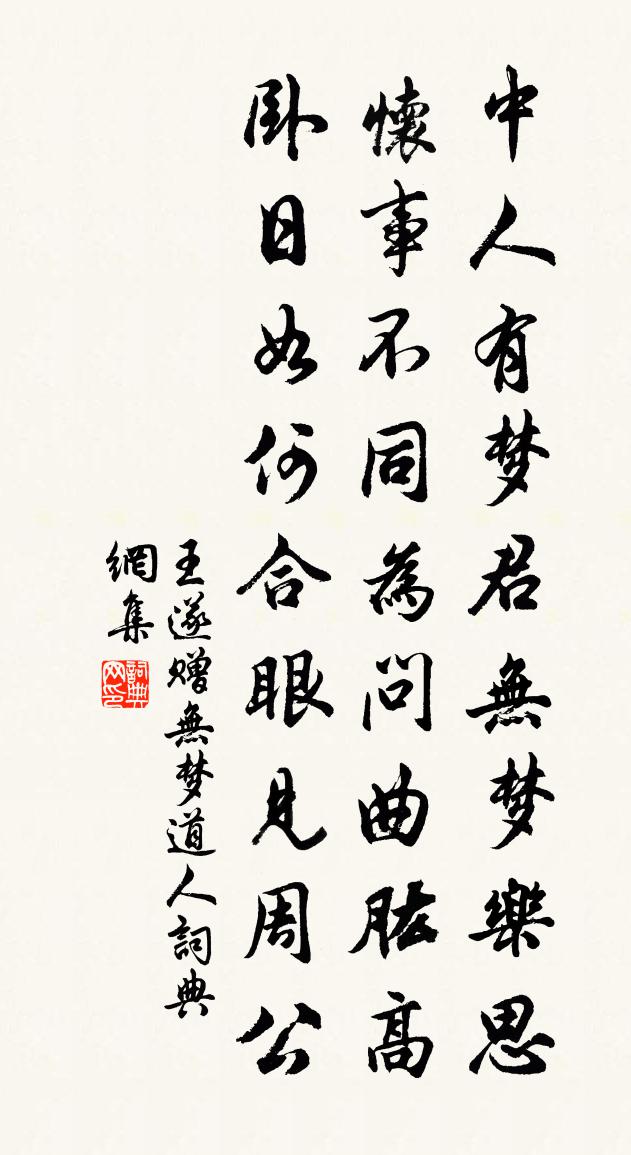 中人有梦君無梦樂思
懷事不同為問曲肱高
卧日如何合眼見周公
王遂赠無梦道人詞典
網集
詞典
网印